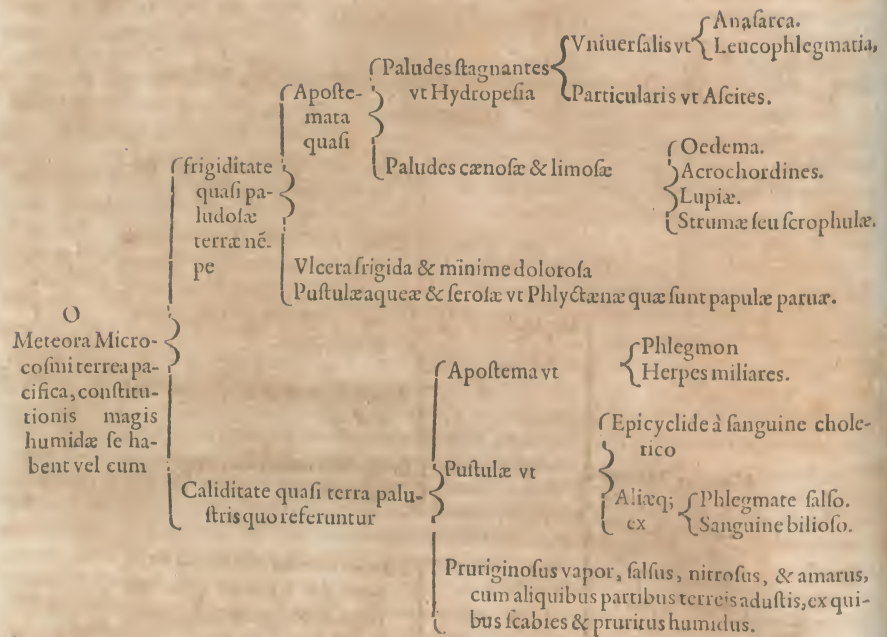 O
Meteora Micro-
coſmi terrea pa-
cifica, conſtitu-
tionis magis
humidæ ſe ha-
bent vel cum
frigiditate
quaſi pa-
ludoſæ
terræ nē-
pe
Apoſte-
mata
quaſi
Paludes ſtagnantes
vt Hydropeſia
Vniuerſalis vt
Anaſarca.
Leucophlegmatia,
Particularis vt Aſcites.
Paludes cænoſæ & limoſæ
Oedema.
Acrochordines.
Lupiæ.
Strumæ ſeu ſcrophulæ.
Vlcera frigida & minime doloroſa
Puſtulæ aqueæ & ſeroſæ vt Phlyctænæ quæ ſunt papulæ paruæ.
Caliditate quaſi terra palu-
ſtris quo referuntur
Apoſtema vt
Phlegmon
Herpes miliares.
Puſtulæ vt
Epicyclide à ſanguine chole-
rico
Aliæq;
ex
Phlegmate ſalſo.
Sanguine bilioſo.
Pruriginoſus vapor, ſalſus, nitroſus, & amarus,
cum aliquibus partibus terreis aduſtis, ex qui-
bus ſcabies & pruritus humidus.